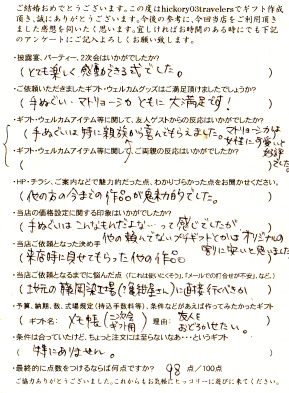 ご結婚おめでとうございます。この度はhickory03travelersでギフト作成
頂き、誠にありがとうございます。今後の参考に、今回当店をご利用頂き
ました感想を伺いたく思います。宜しければお時間のある時にでも下記
のアンケートにご記入よろしくお願い致します。
・披露宴、パーティー、2次会はいかがでしたか?
(とても楽しく感動できる式でした。)
・ご依頼いただきましたギフト・ウェルカムグッズはご満足頂けましたでしょうか?
(手ぬぐい・マトリョーシカともに大満足です!)
・ギフト・ウェルカムアイテム等に関して、友人ゲストからの反応はいかがでしたか?
(手ぬぐいは特に親族から喜んでもらえました。マトリョーシカは
女性に可愛いと
・ギフト・ウェルカムアイテム等に関して、ご両親の反応はいかがでしたか?
好評
でした。)
・HP・チラシ、ご案内などで魅力的だった点、わかりづらかった点をお聞かせください。
(他の方の今までの作品が見れてよかったでした。)
・当店の価格設定に関する印象はいかがでしたか?
(手ぬぐいはこんなもんだよな…って感じでしたが
他の頼んでないプチギフトとかはオリジナルの
・当店ご依頼となった決め手
割に安いと思いました)
(来店時に見せてもらった他の作品)
・当店ご依頼となるまでに悩んだ点(「これは使いにくそう」、「メールでの打合せが不安」、など)
(地元の 染工場( 屋さん)に直接行くべきか)
・予算、納期、数、式場規定(持込手数料等)、条件などがあえば作ってみたかったギフト
(ギフト名: メモ帳(二次会ギフト用) 理由: 友人を
おどろかせたい。)
・条件は合っていたけど、ちょっと注文には至らないなあ・・・というギフト
(特にありません。)
・最終的に点数をつけるならば何点ですか? 98 点/100点
ご協力ありがとうございました。これからもお気軽にヒッコリーに遊びに来てください。